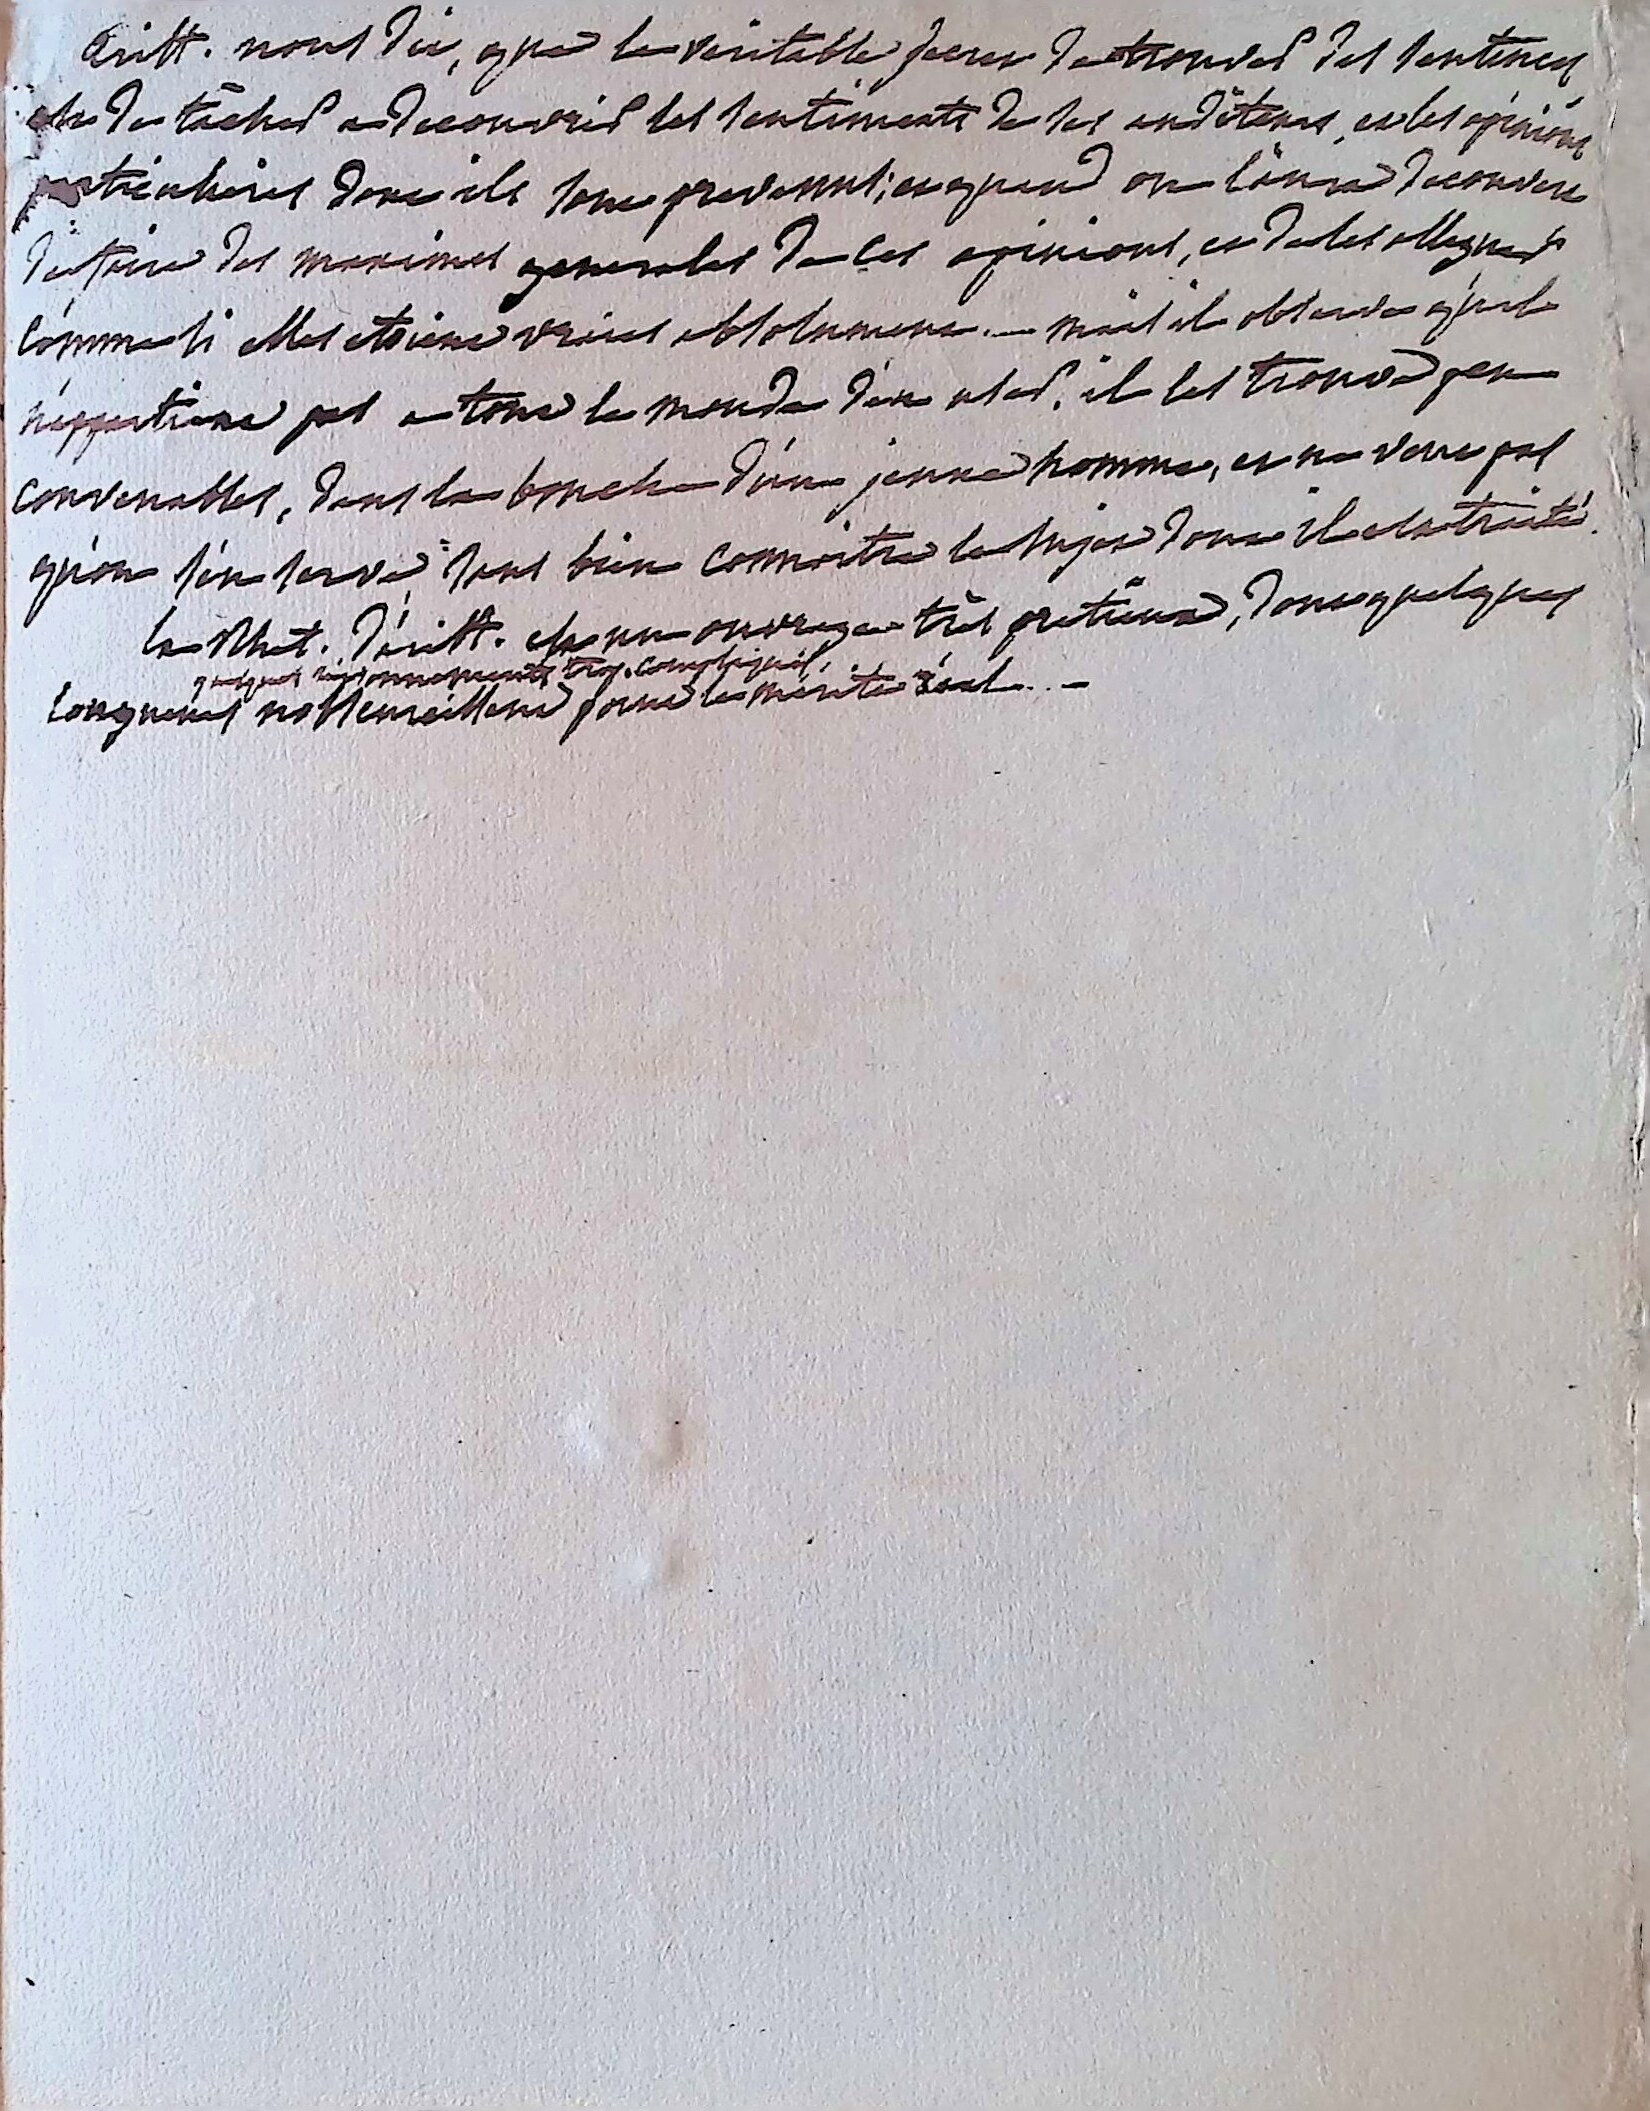 Arist. nous dit, que le veritable secret de trouver des sentences
est de tâcher a decouvrir les sentiments de ses auditeurs, et les opinions
particulieres dont ils sont prevenus; et quand on l'aura decouvert
de faire des maximes generales de ces opinions, et de les alleguer
comme si elles etoient vraies absolument. — mais il observe qu'il
n'appartient pas a tout le monde d'en user. il les trouve peu
convenables, dans la bouche d'un jeune homme, et ne veut pas
qu'on s'en serve sans bien connoitre le sujet dont il est traité.
la Rhet. d'Arist. est un ouvrage très pretieux, dont quelques
quelques raisonnements trop compliqués,
longueurs n'obscurcissent point le merite réel. . –